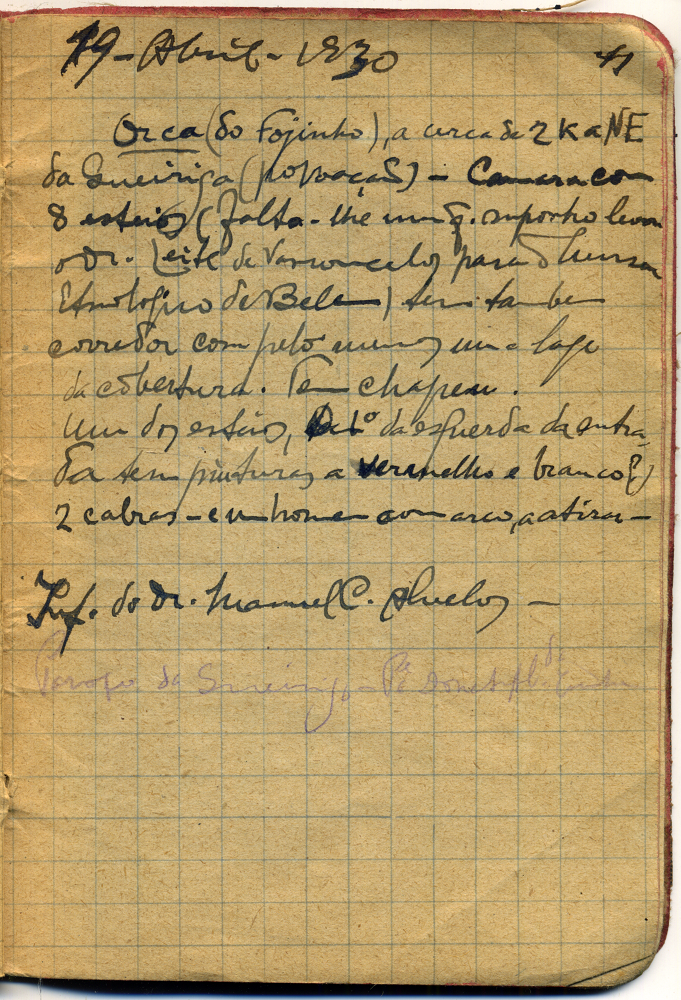 19 - Abril - 1930
41
Orca (do Fojinho), a cerca de 2 K a NE
da Queiriga (povoação) - Camara com
8 esteios (falta-lhe um q. suponho levou
o Dr. Leite de Vasconcelos para o Museu
Etnologico de Belem) tem tambem
corredor com pelo menos uma lage
da cobertura. Tem chapeu.
Um dos esteios, o 1º da esquerda da entra-
da tem pinturas a vermelho e branco (?)
2 cabras - e um homem com arco, a atirar -
Inf. do Dr. Manuel C. Alvelos -
da Queiriga - Pe